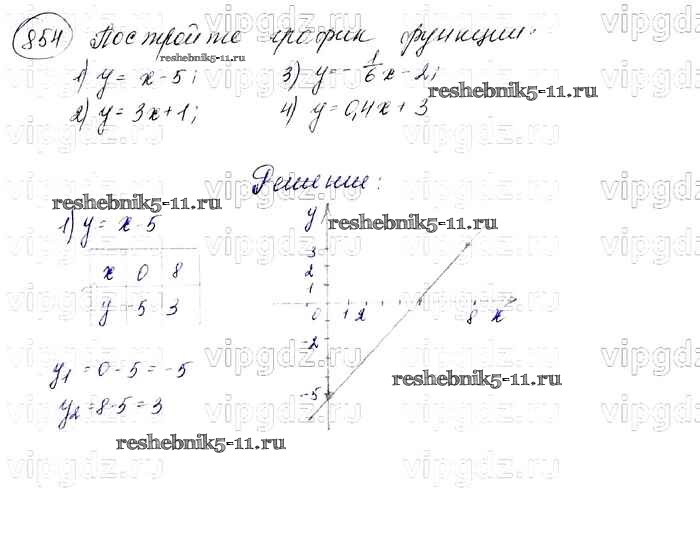 854 Постройте график функции:
1) y = x - 5; 3) y = -1/6 x - 2;
2) y = 3x + 1; 4) y = 0,4x + 3
reshebnik5-11.ru
reshebnik5-11.ru
Решение:
reshebnik5-11.ru
reshebnik5-11.ru
1) y = x - 5
x 0 8
y -5 3
y
3
2
1
0 1 2 8 x
-2
-5
y1 = 0 - 5 = -5
y2 = 8 - 5 = 3
reshebnik5-11.ru
reshebnik5-11.ru
vipgdz.ru vipgdz.ru vipgdz.ru vipgdz.ru